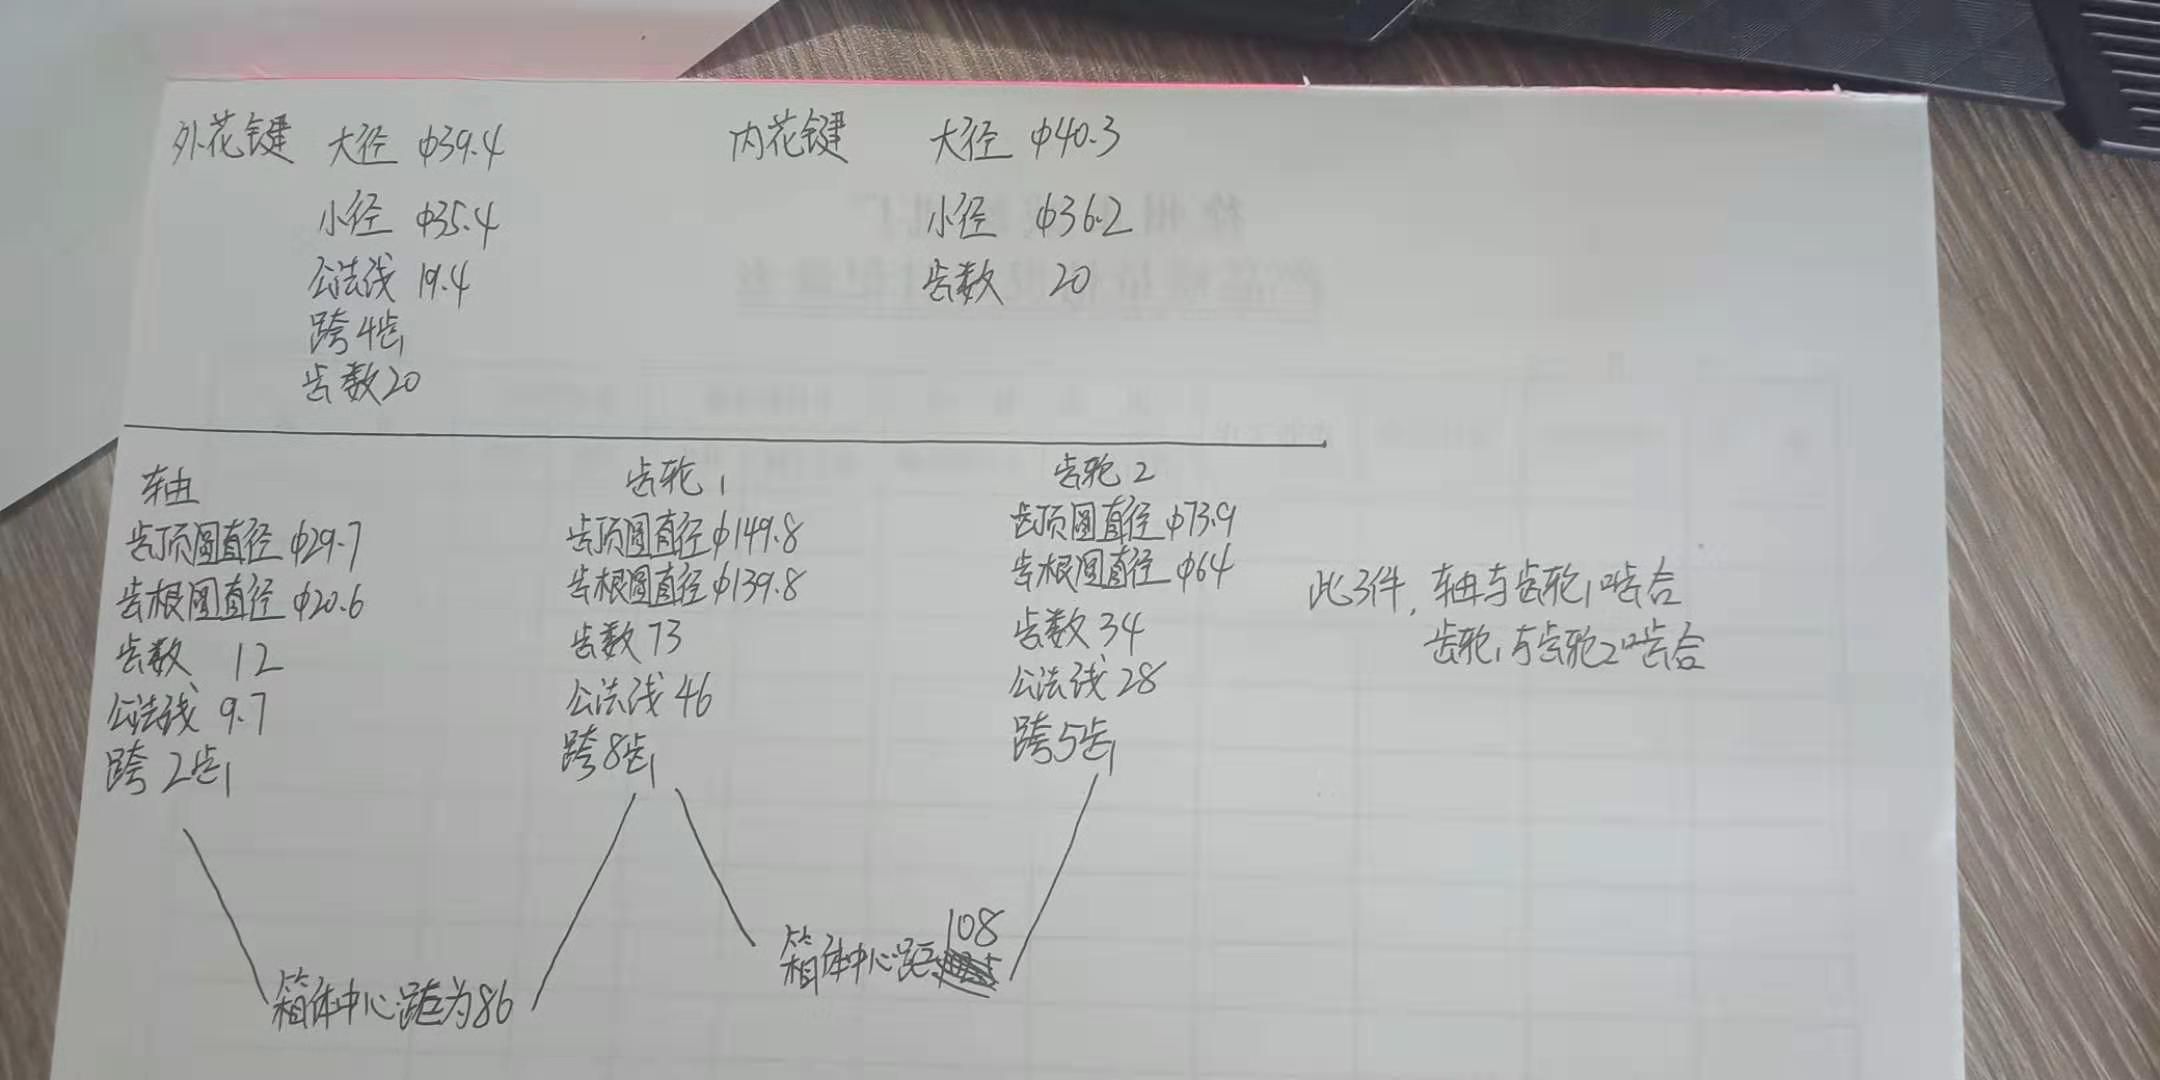 外花键 大径 φ39.4
小径 φ35.4
公法线 19.4
跨4齿
齿数20
内花键 大径 φ40.3
小径 φ36.2
齿数 20
轴
齿顶圆直径 φ29.7
齿根圆直径 φ20.6
齿数 12
公法线 9.7
跨2齿
齿轮1
齿顶圆直径φ149.8
齿根圆直径φ139.8
齿数73
公法线46
跨8齿
齿轮2
齿顶圆直径φ73.9
齿根圆直径φ64
齿数34
公法线28
跨5齿
此3件,轴与齿轮1啮合
齿轮1与齿轮2啮合
箱体中心距108
箱体中心距为86